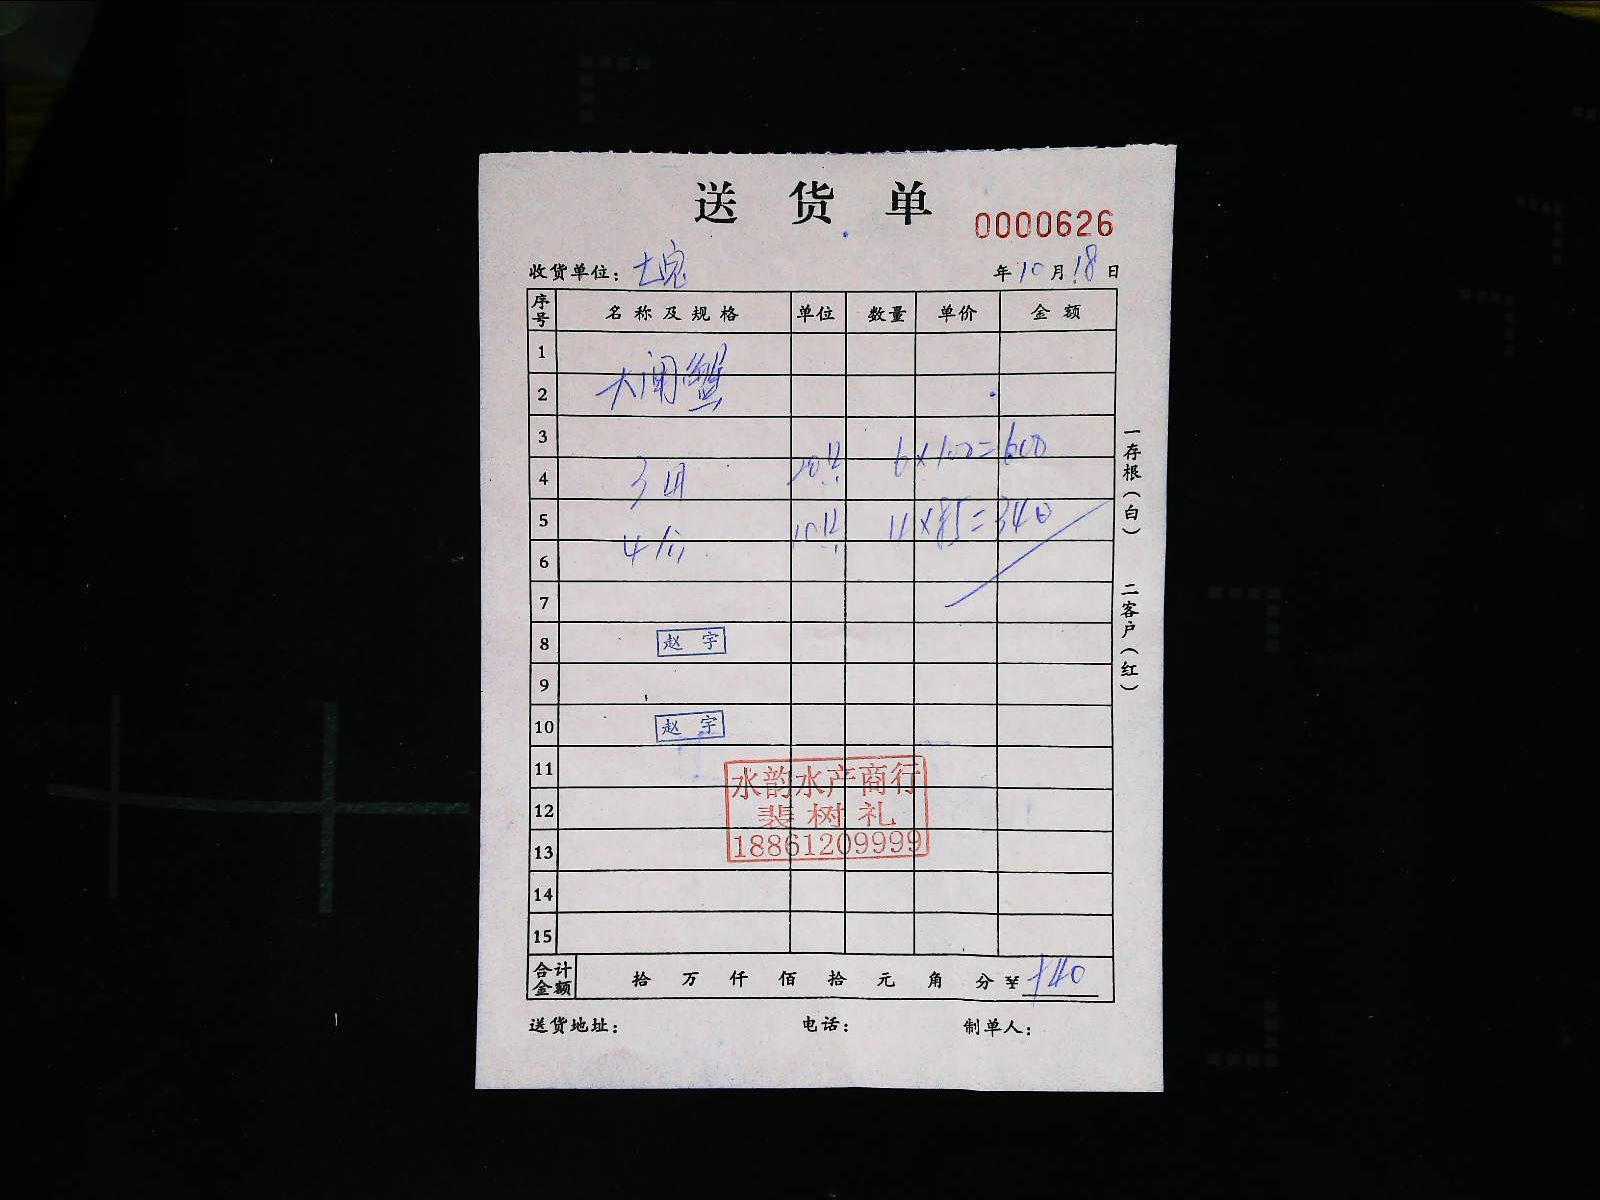 送 货 单
0000626
收货单位：
年10月18日
序号 名称及规格 单位 数量 单价 金额
1
2 大闸蟹
3
4 3 20只 6×100=600
5
6 4 10只 4×85=340
7
8 赵 宇
9
10 赵 宇
11
12
13
14
15
水韵水产商行
裴树礼
18861209999
合计金额 拾 万 仟 佰 拾 元 角 分 ¥ 940
送货地址： 电话： 制单人：
一存根（白） 二客户（红）